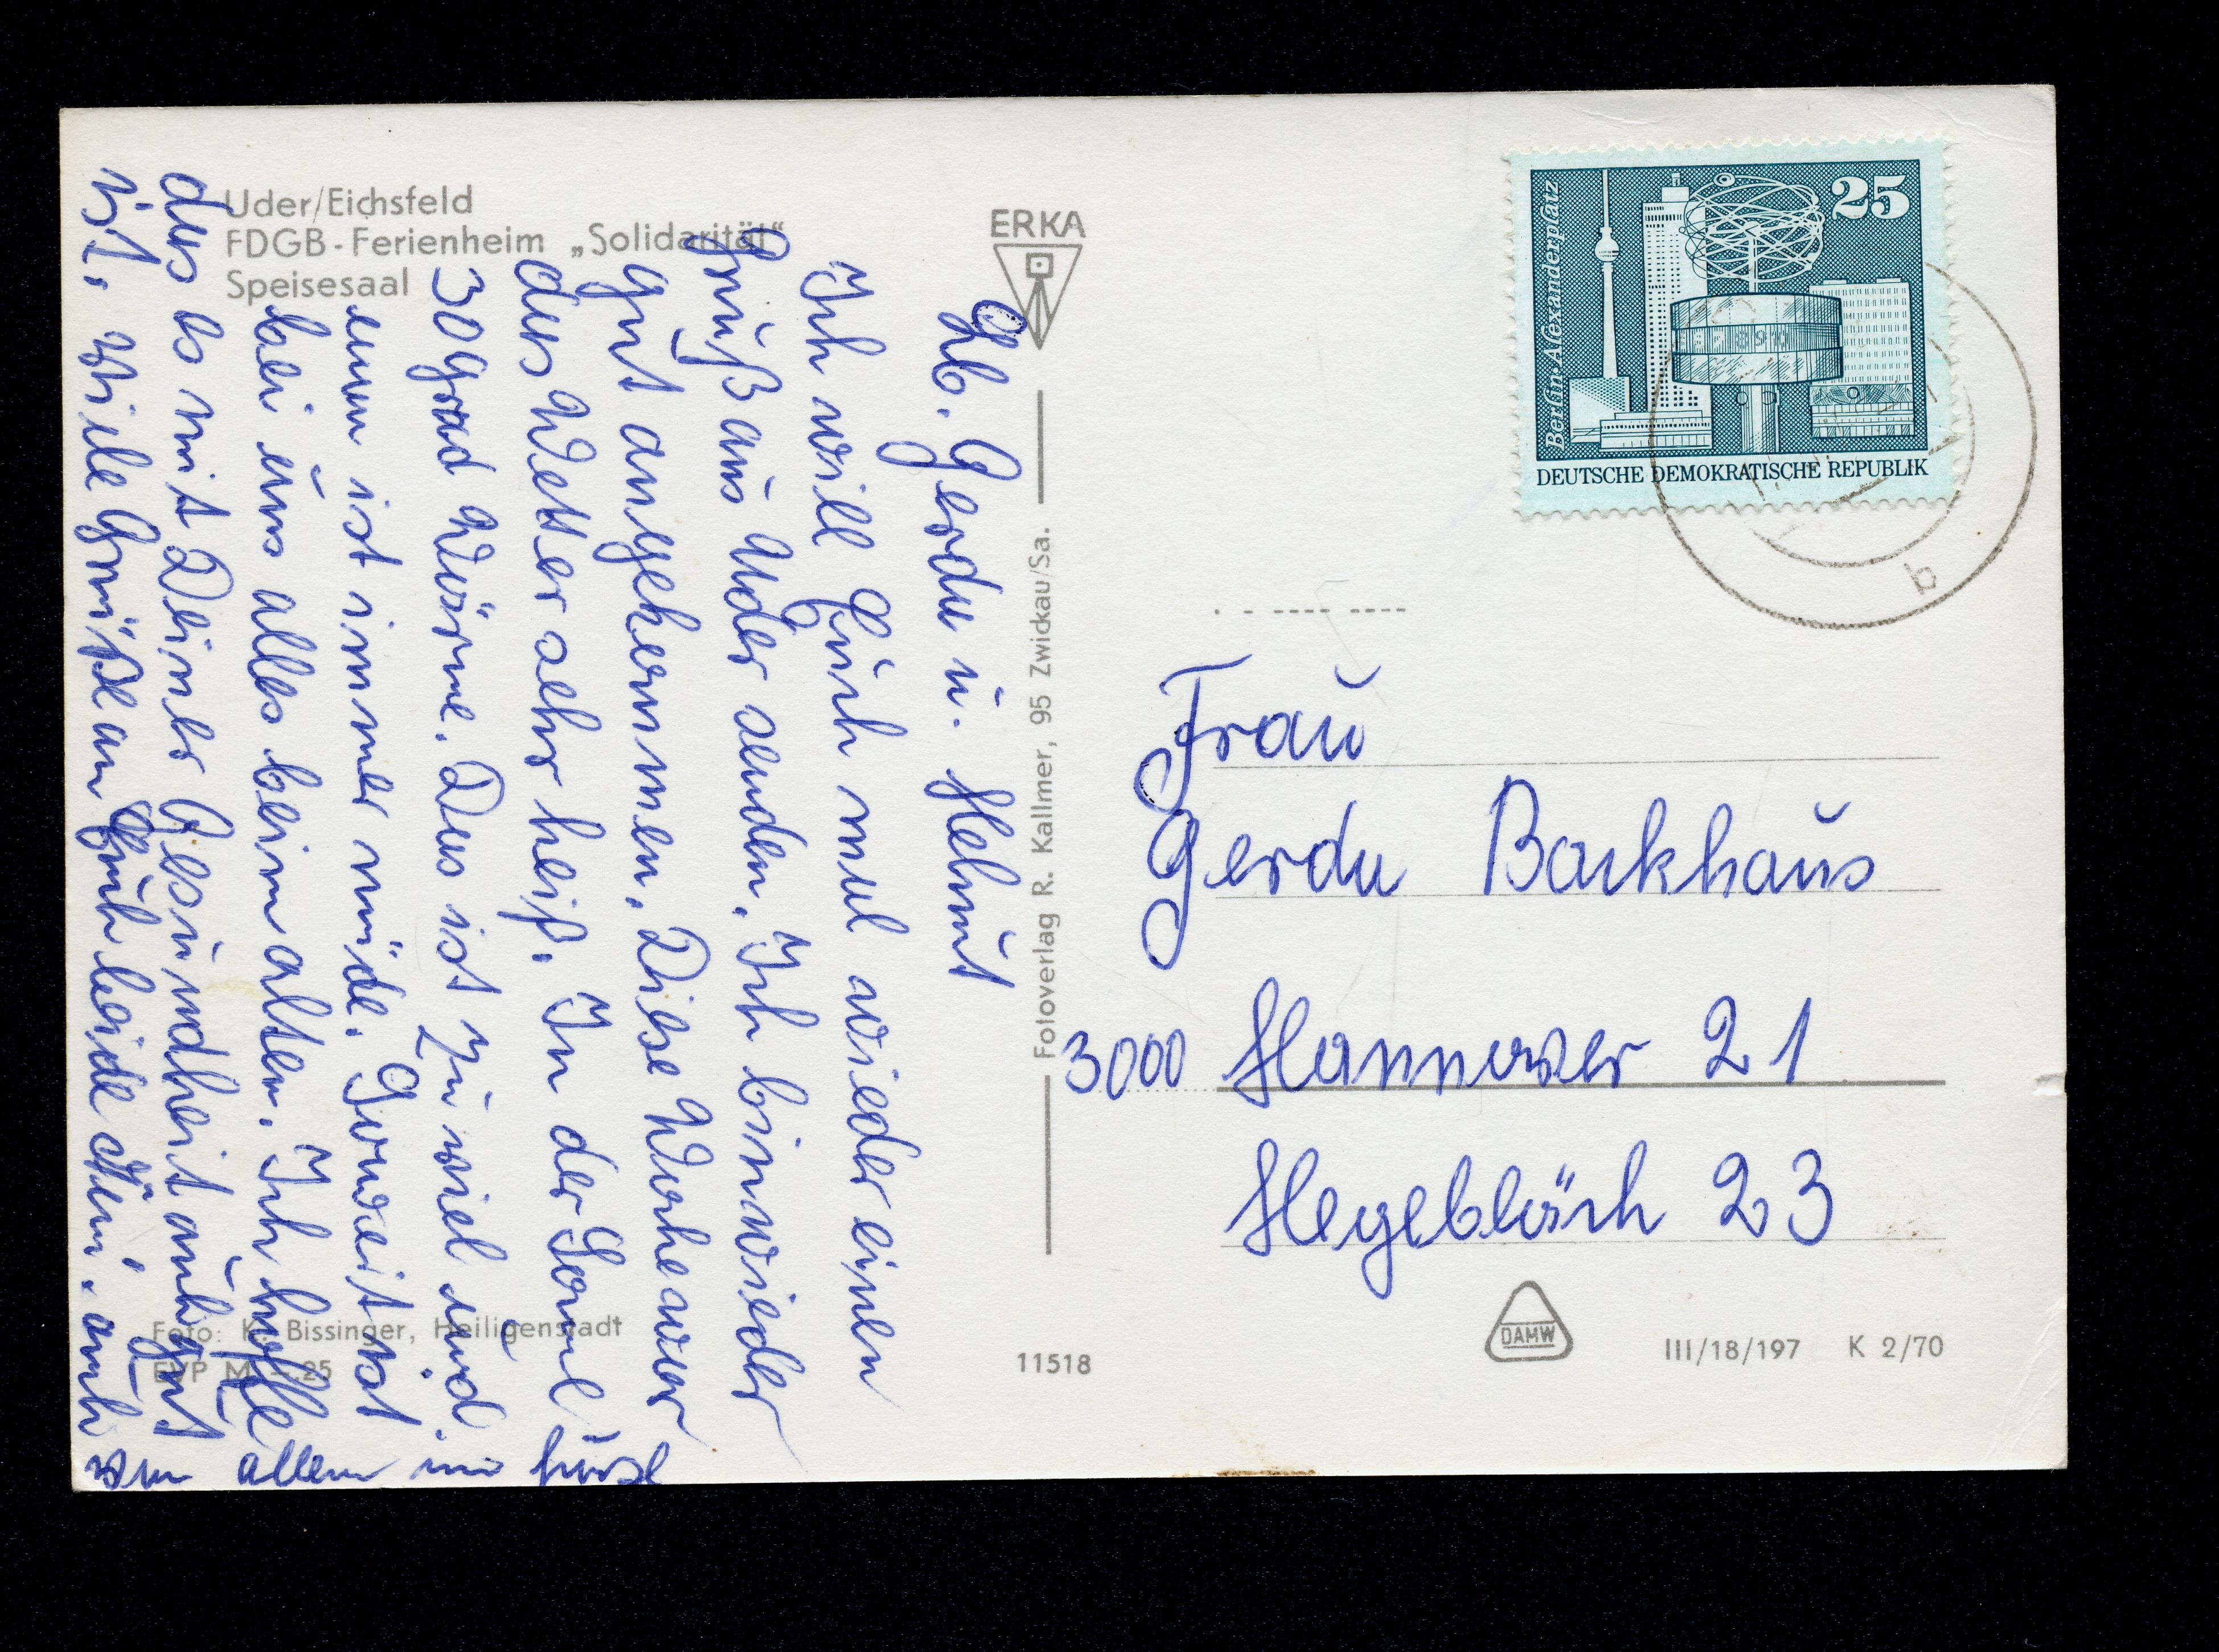 Uder/Eichsfeld
FDGB-Ferienheim „Solidarität“
Speisesaal
Lb. Gerda u. Helmut
Ich will Euch mal wieder einen
Gruß aus Uder senden. Ich bin wieder
gut angekommen. Diese Woche war
das Wetter sehr heiß. In der Sonne
30 Grad Wärme. Das ist zu viel und
man ist immer müde. Soweit ist
bei uns alles beim alten. Ich hoffe
das es mit Deiner Gesundheit auch gut
ist. Viele Grüße an Euch beide auch
von allen
Foto: K. Bissinger, Heiligenstadt
EVP M -.25
ERKA
Fotoverlag R. Kallmer, 95 Zwickau/Sa.
11518
Berlin, Alexanderplatz
25
DEUTSCHE DEMOKRATISCHE REPUBLIK
b
Frau
Gerda Backhaus
3000 Hannover 21
Hegebläch 23
DAMW
III/18/197 K 2/70